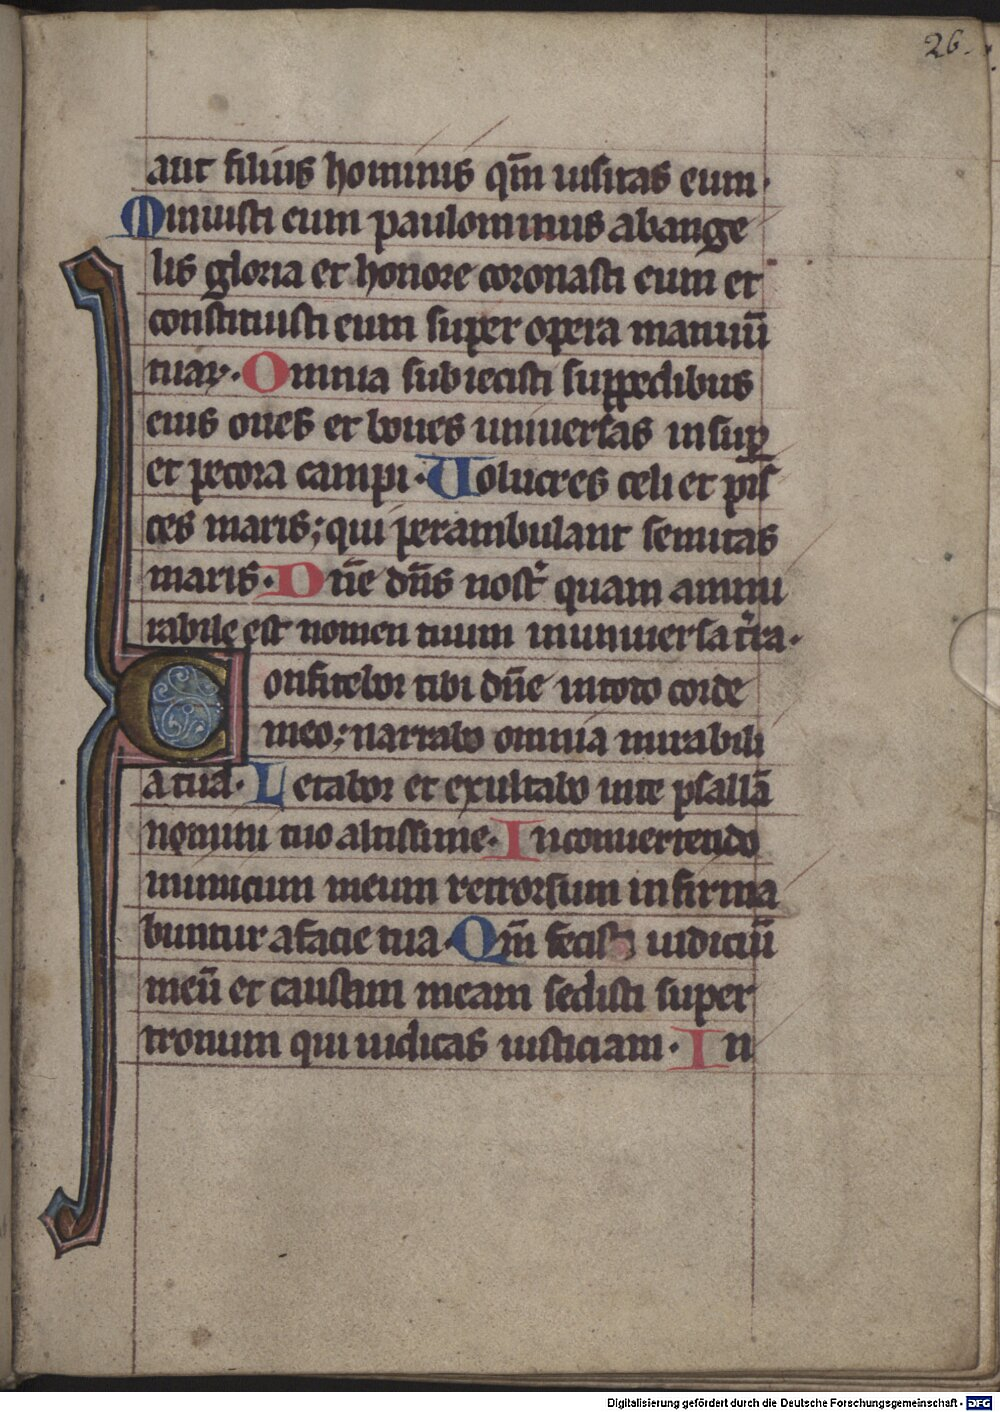 26.
aut filius hominis qm̄ uisitas eum·
Minuisti eum paulominus abange
lis gloria et honore coronasti eum et
constituisti eum super opera manuū
tuaꝝ· Omnia subiecisti suppedibus
eius oues et boues uniuersas insuꝑ
et pecora campi· Uolucres celi et pis
ces maris; qui perambulant semitas
maris· Dn̄e dn̄s nost̄ quam ammi
rabile est nomen tuum inuniuersa t̄ra·
Confitebor tibi dn̄e intoto corde
meo; narrabo omnia mirabili
a tua· Letabor et exultabo inte psallā
nomini tuo altissime· Inconuertendo
inimicum meum retrorsum infirma
buntur afacie tua· Qm̄ fecisti iudiciū
meū et causam meam sedisti super
tronum qui iudicas iusticiam· In
Digitalisierung gefördert durch die Deutsche Forschungsgemeinschaft - DFG